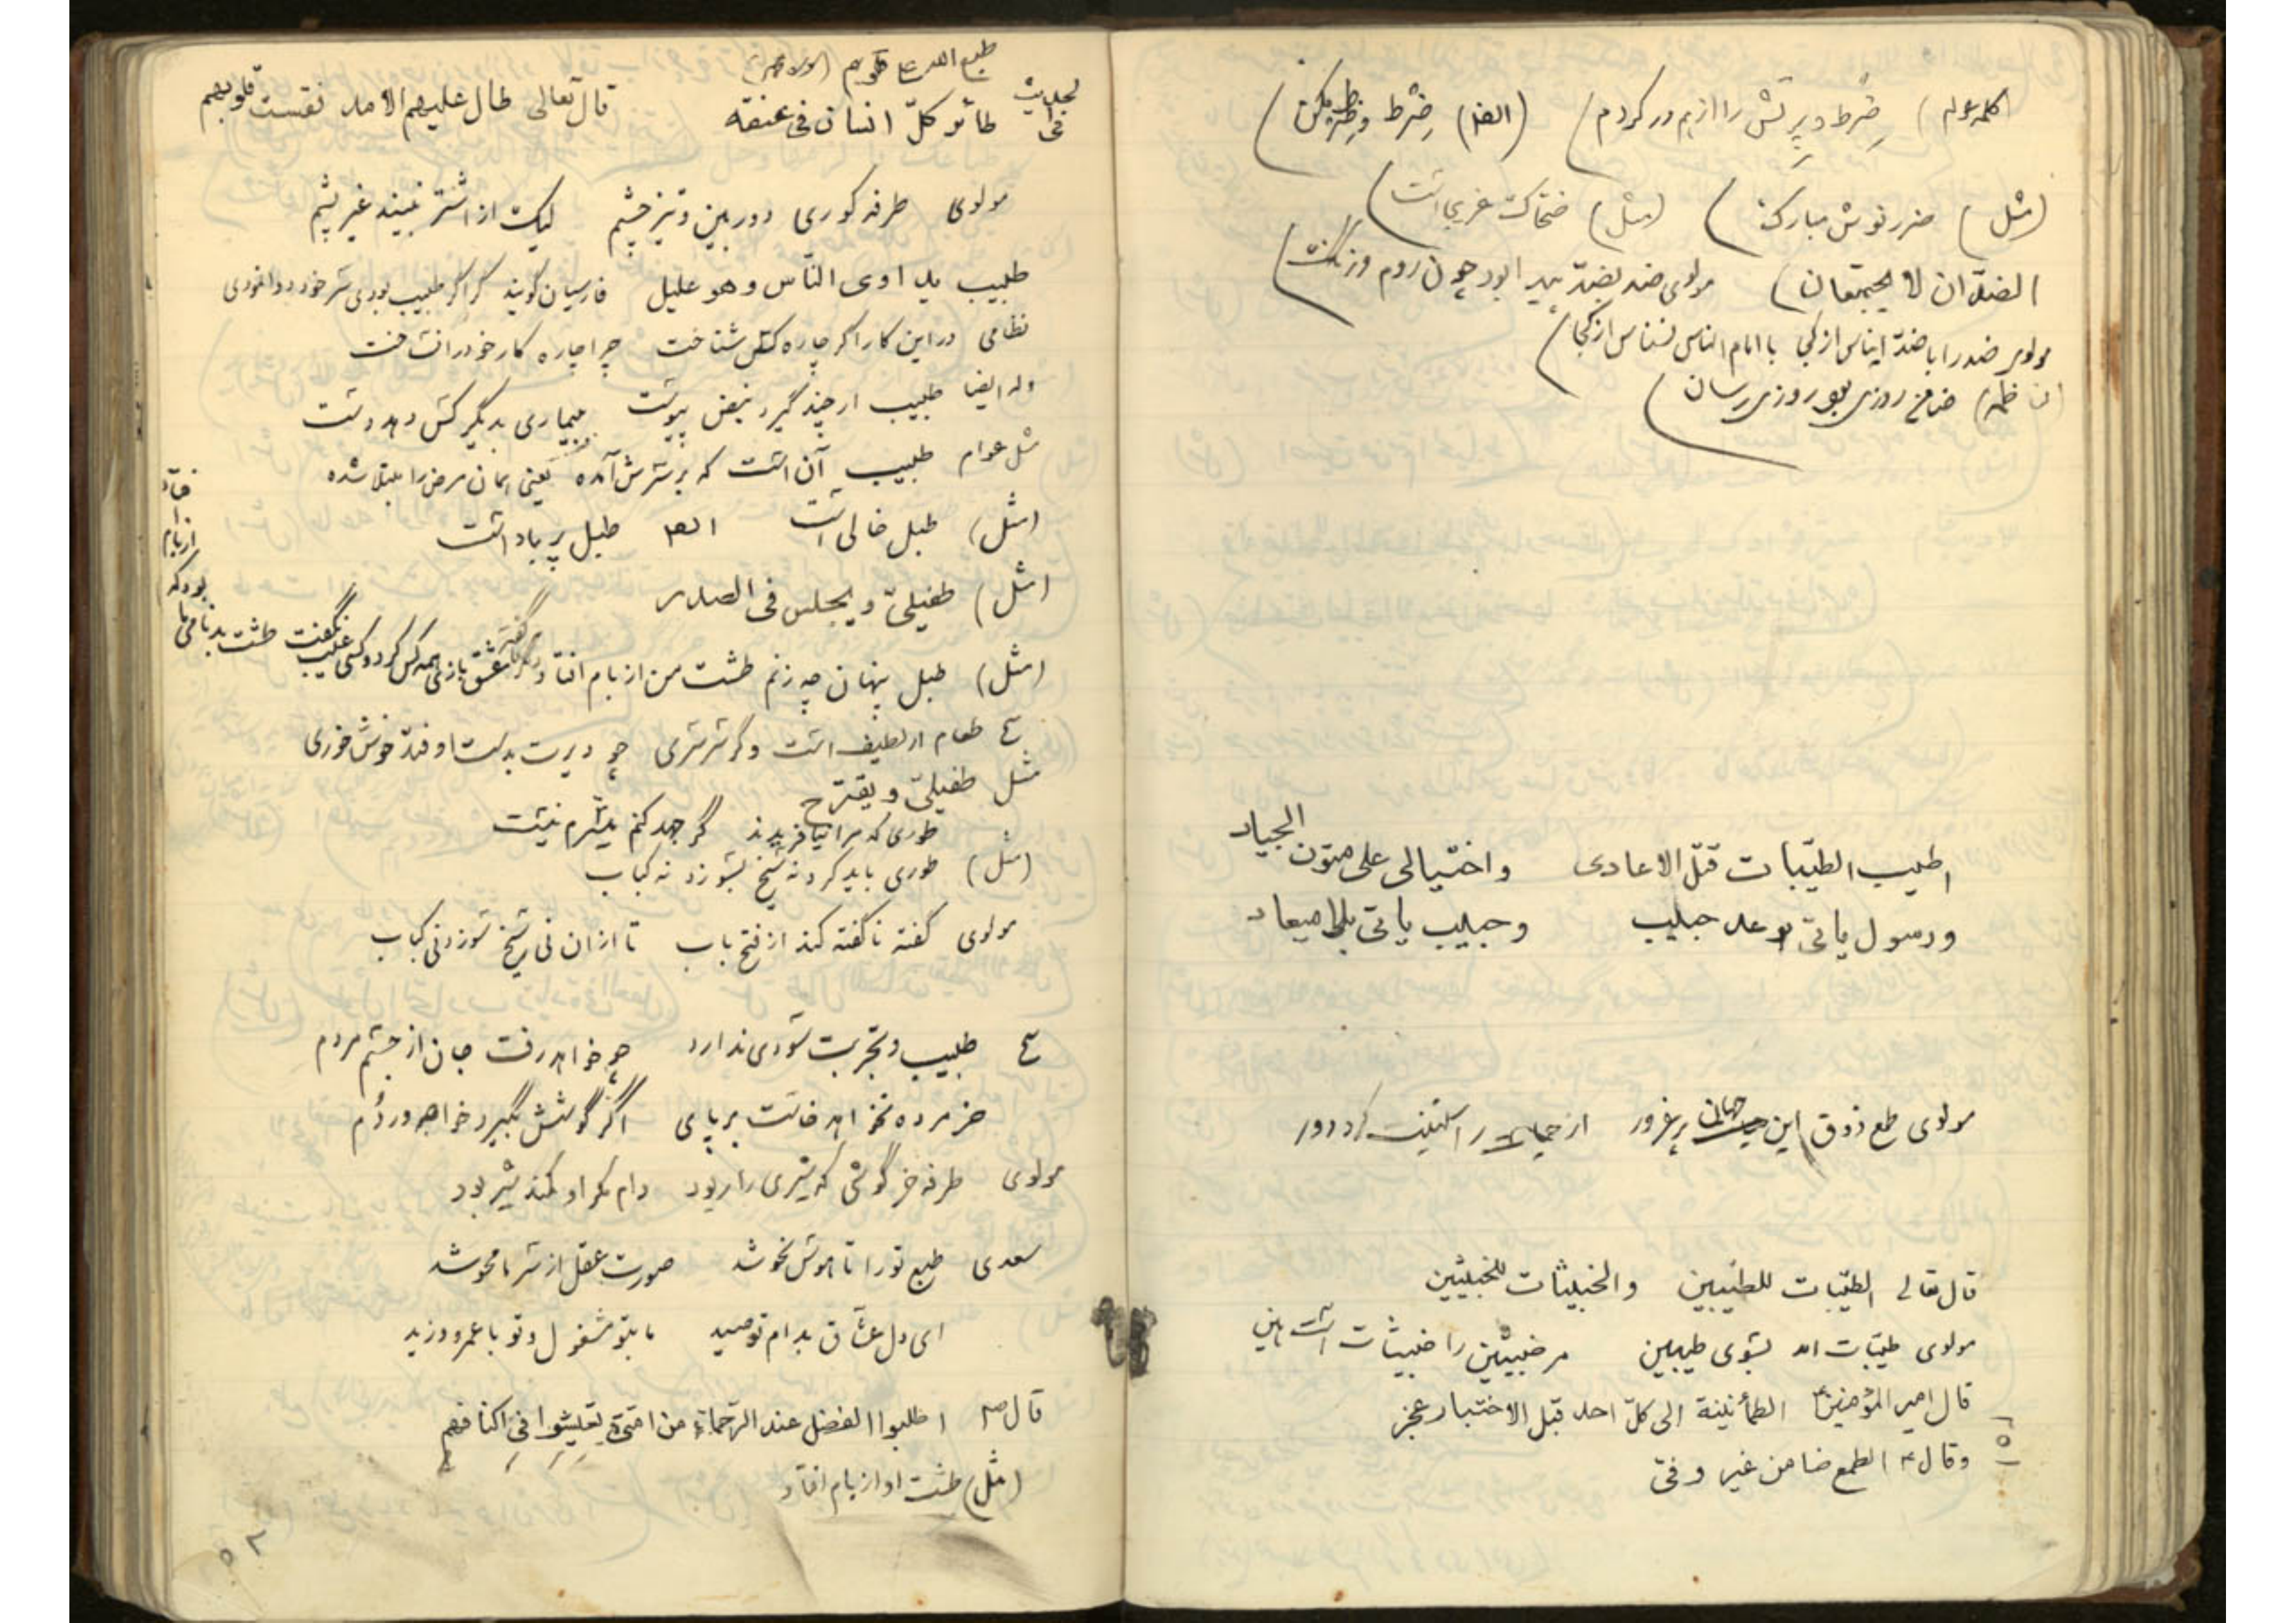 ضرط و پرتش را از هم در کردم ) (ایضا) ضرط
(مثل) ضرر نوش مبارک ) (مثل) ضحاک غریبی است )
الضدّان لا یجتمعان ) مولوی ضد بضد پیدا بود چون روم و زنگ )
مولوی ضد را با ضد ایناس از کجا با امام الناس نسناس از کجا )
ضامن روزی بود روزی رسان )
اطیب الطیّبات قتل الاعادی واختیالی علی متون الجیاد
ورسول یاتی بوعد حبیب وحبیب یاتی بلا میعاد
مولوی طمع ذوق این پر غرور از کرد دور
قال تعالی الطیّبات للطیّبین والخبیثات للخبیثین
مولوی طیّبات آمد بسوی طیبین مر خبیثین را خبیثات است هین
قال امیر المؤمنین ع الطمأنینة الی کلّ احد قبل الاختبار عجز
وقال ع الطمع ضامن غیر وفیّ
طبع الله علی قلوبهم
طائر کلّ انسان فی عنقه قال تعالی طال علیهم الامد فقست قلوبهم
مولوی طرفه کوری دوربین و تیز چشم لیک از اشتر نبیند غیر پشم
طبیب یداوی النّاس وهو علیل فارسیان گویند گر اگر طبیب بودی سر خود دوا نمودی
نظامی در این کار اگر چاره کس شناخت چرا چاره کار خود را نساخت
وله ایضا طبیب ار چند گیرد نبض پیوست ببیماری بدیگر کس دهد دست
مثل عوام طبیب آن است که بر سرش آمده یعنی همان مرض را مبتلا شده
(مثل) طبل خالی است ایضا طبل پر باد است
(مثل) طفیلیّ ویجلس فی الصدر
(مثل) طبل پنهان چه زنم طشت من از بام افتاد عشق بازی همه کس کرد و کسی عیب نگفت طشت بدنامی ما
بود که
از بام
افتاد
طعام ار لطیف است و گر سرسری چو دیرت بدست اوفتد خوش خوری
مثل طفیلیّ ویقترح
طوری که مرا نیافریدند گر جهد کنم میسّرم نیست
(مثل) طوری باید کرد نه سیخ بسوزد نه کباب
مولوی گفته ناگفته کند از فتح باب تا از آن نی سیخ سوزد نی کباب
طبیب و تجربت سودی ندارد چو خواهد رفت جان از جسم مردم
خر مرده نخواهد خاست بر پای اگر گوشش بگیرد خواجه ور دم
مولوی طرفه خرگوشی که شیری را ربود دام مکر او کمند شیر بود
سعدی طبع تو را تا هوس نحو شد صورت عقل از سر ما محو شد
ای دل عشّاق بدام تو صید ما بتو مشغول و تو با عمرو و زید
قال ص اطلبوا الفضل عند الرحماء من امتی تعیشوا فی اکنافهم
(مثل) طشت او از بام افتاد